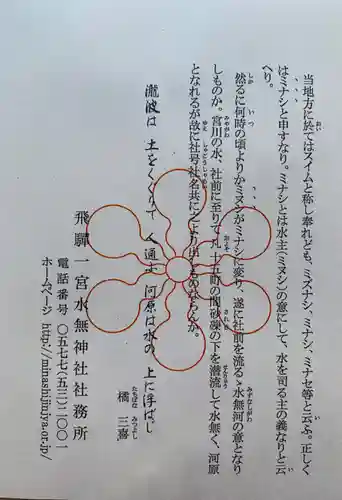 当地方に於てはスイムと称し奉れども、ミズナシ、ミナシ、ミナセ等と云ふ。正しく
はミナシと申すなり。ミナシとは水主(ミヌシ)の意にして、水を司る主の義なりと云
へり。
然るに何時の頃よりかミヌシがミナシに変り、遂に社前を流るゝ水無河の意となり
しものか。宮川の水、社前に至りて凡十五町の間砂礫の下を潜流して水無く、河原
となれるが故に社号社名共に之より出しものならんか。
瀧波は 土をくゞりて 人通す 河原は水の 上に浮ばし
橘 三喜
飛騨一宮水無神社社務所
電話番号 〇五七七(五三)二〇〇一
ホームページ http://minashijinjya.or.jp/